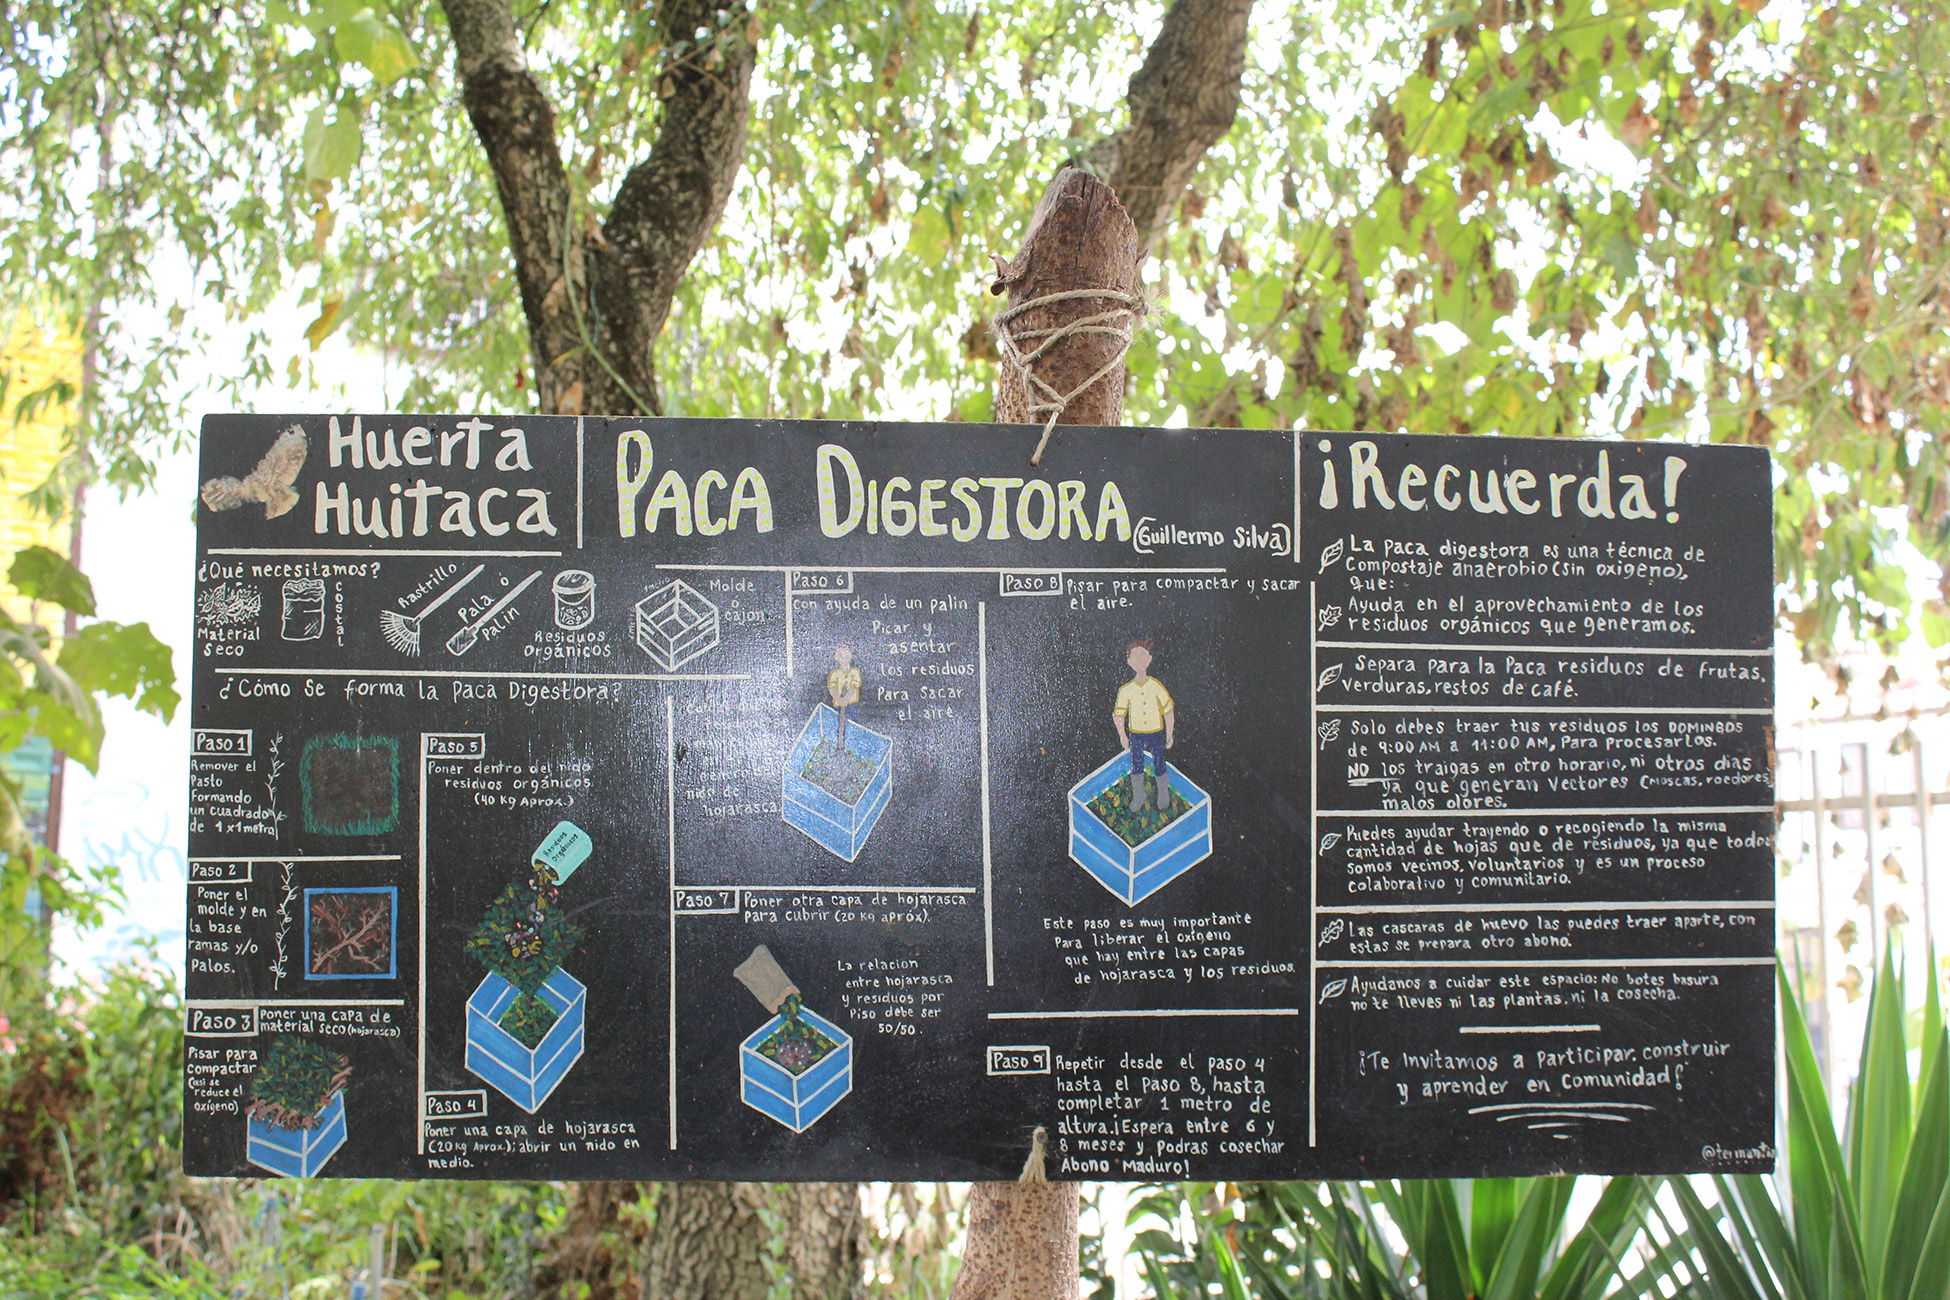 Huerta
Huitaca
PACA DIGESTORA
(Guillermo Silva)
¿Qué necesitamos?
Material
seco
Costal
Rastrillo
Pala ó
Palin
Residuos
Orgánicos
1 metro
Molde
ó
cajon.
¿Cómo se forma la Paca Digestora?
Paso 1
Remover el
Pasto
formando
un cuadrado
de 1x1metro
Paso 2
Poner el
molde y en
la base
ramas y/o
Palos.
Paso 3
Poner una capa de
material seco (hojarasca)
Pisar para
compactar
(asi se
reduce el
oxígeno)
Paso 4
Poner una capa de hojarasca
(20 kg Aprox.); abrir un nido en
medio.
Paso 5
Poner dentro del nido
residuos orgánicos
(40 kg Aprox.)
Residuos
Orgánicos
Paso 6
con ayuda de un palin
Picar y
asentar
los residuos
Para sacar
el aire
nido de
hojarasca
Paso 7
Poner otra capa de hojarasca
para cubrir (20 kg apróx).
La relacion
entre hojarasca
y residuos por
Piso debe ser
50/50.
Paso 8
Pisar para compactar y sacar
el aire.
Este paso es muy importante
Para liberar el oxígeno
que hay entre las capas
de hojarasca y los residuos.
Paso 9
Repetir desde el paso 4
hasta el paso 8, hasta
completar 1 metro de
altura. ¡Espera entre 6 y
8 meses y podras cosechar
Abono Maduro!
¡Recuerda!
La paca digestora es una técnica de
Compostaje anaerobio (sin oxigeno),
que:
Ayuda en el aprovechamiento de los
residuos orgánicos que generamos.
Separa para la Paca residuos de frutas,
verduras, restos de café.
Solo debes traer tus residuos los DOMINGOS
de 9:00 AM a 11:00 AM, Para procesarlos.
NO los traigas en otro horario, ni otros dias
ya que generan vectores (moscas, roedores,
malos olores.
Puedes ayudar trayendo o recogiendo la misma
cantidad de hojas que de residuos, ya que todos
somos vecinos, voluntarios y es un proceso
colaborativo y comunitario.
Las cascaras de huevo las puedes traer aparte, con
estas se prepara otro abono.
Ayudanos a cuidar este espacio: No botes basura
no te lleves ni las plantas, ni la cosecha.
¡Te invitamos a Participar, construir
y aprender en Comunidad!